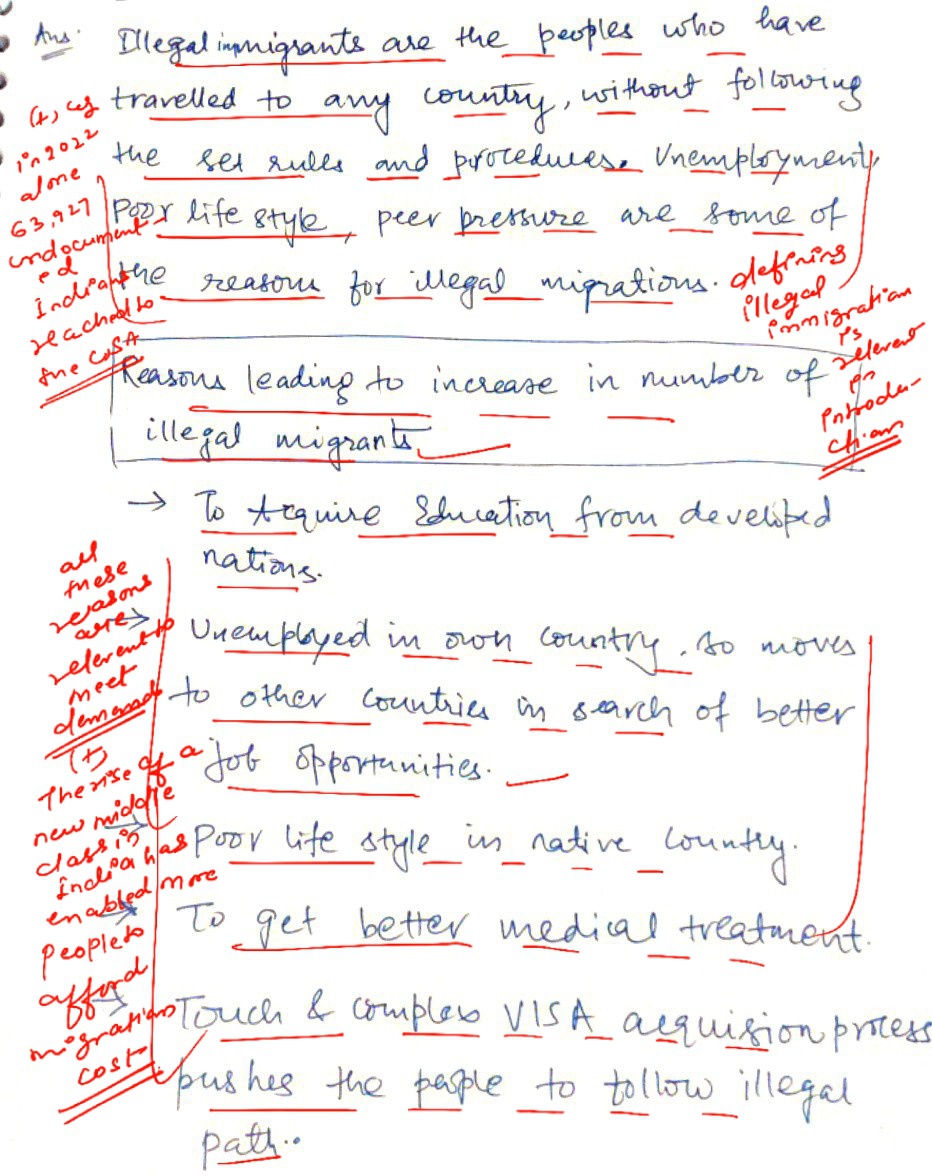 Ans: Illegal immigrants are the peoples who have
travelled to any country, without following
the set rules and procedures. Unemployment,
Poor life style, peer pressure are some of
the reasons for illegal migrations.
(+) eg
in 2022
alone
63,927
undocument
ed
Indians
reached to
the USA
defining
illegal
immigration
is
relevent
in
introdu-
ction
Reasons leading to increase in number of
illegal migrants
→ To Acquire Education from developed
nations.
→ Unemployed in own country, so moves
to other countries in search of better
job opportunities.
→ Poor life style in native country.
→ To get better medical treatment.
→ Touch & complex VISA acquision process
pushes the people to follow illegal
path..
all
these
reasons
are
relevent to
meet
demand
(+)
The rise of a
new middle
class in
India has
enabled more
people to
afford
migration
cost